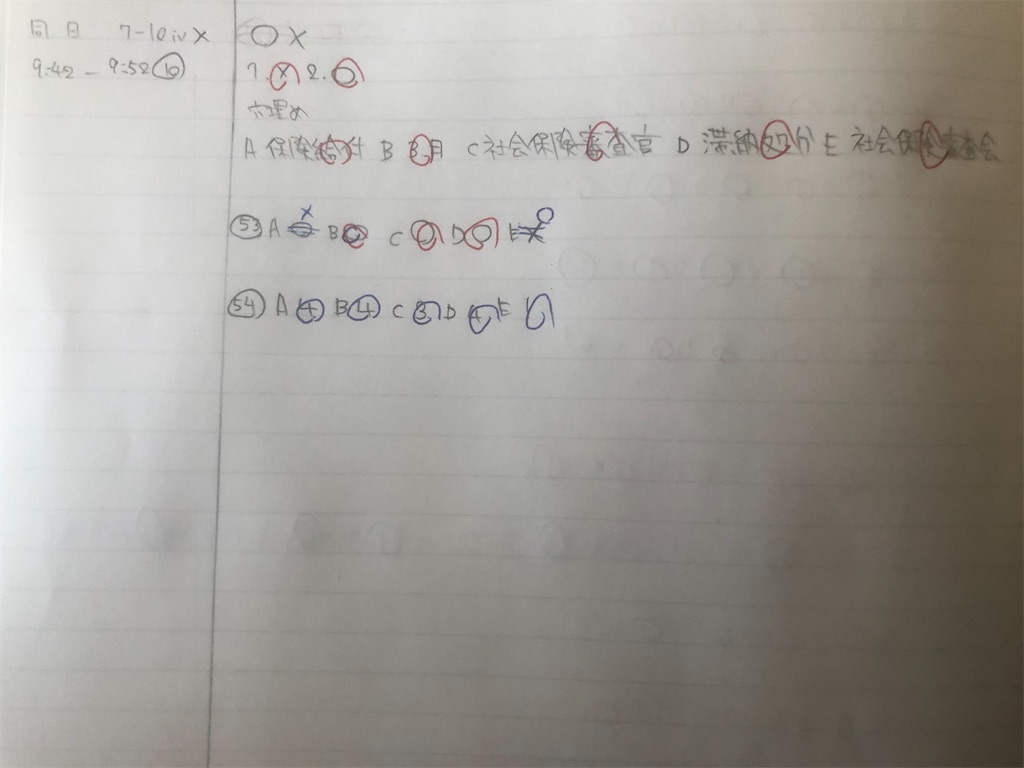 同日 7-10iv× ○×
9:42 - 9:52⑩ 1.× 2.○
穴埋め
A 保険給付 B 3月 C 社会保険審査官 D 滞納処分 E 社会保険審査会
53 A × B ○ C ○ D ○ E ○
54 A B C D E